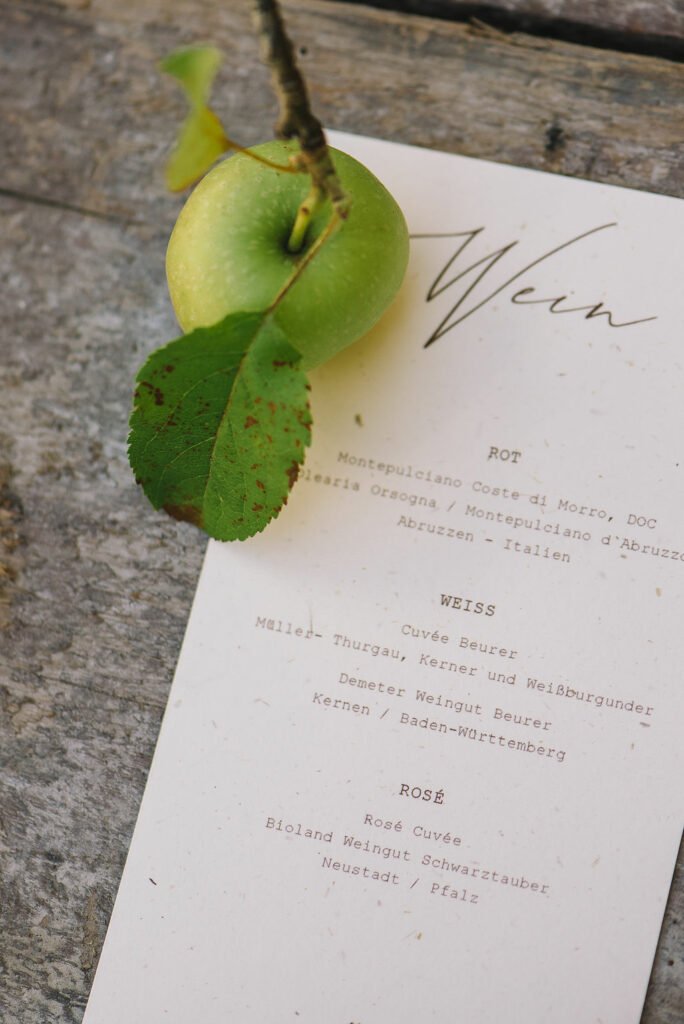 Wein
ROT
Montepulciano Coste di Morro, DOC
Orsogna / Montepulciano d`Abruzzo
Abruzzen - Italien
WEISS
Cuvée Beurer
Müller- Thurgau, Kerner und Weißburgunder
Demeter Weingut Beurer
Kernen / Baden-Württemberg
ROSÉ
Rosé Cuvée
Bioland Weingut Schwarztauber
Neustadt / Pfalz